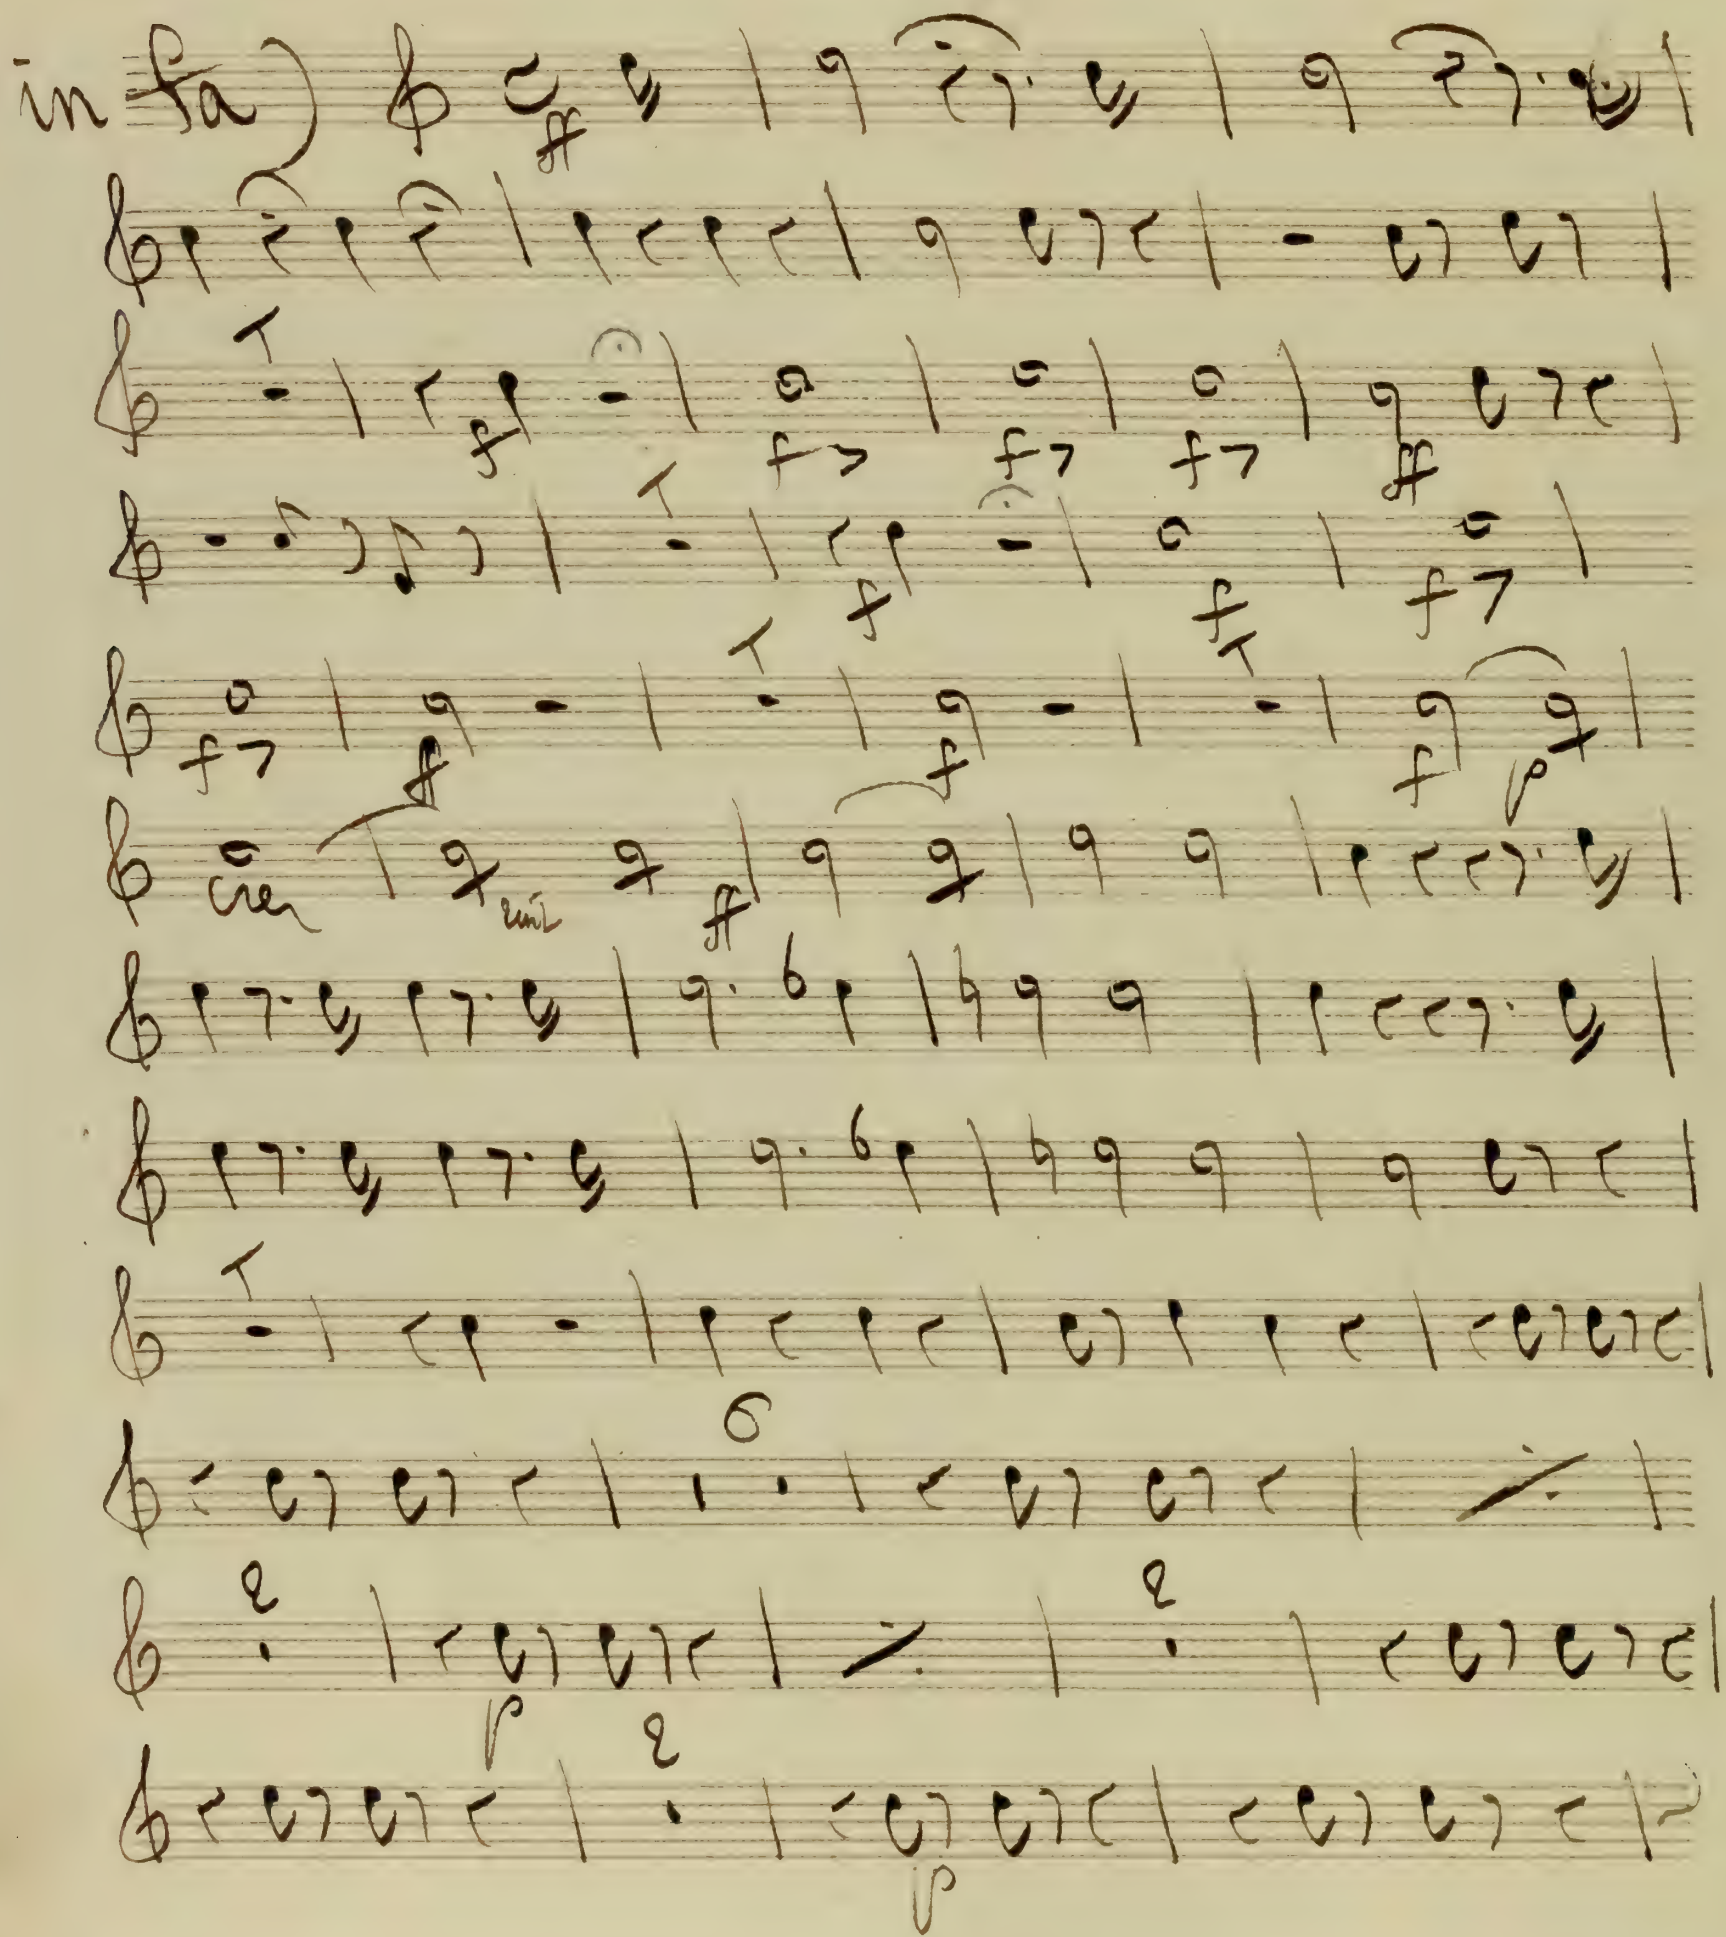 in fa)
ff
f
f f f ff
f f f
f ff f f p
cres ff
6
2 2
p
2
p